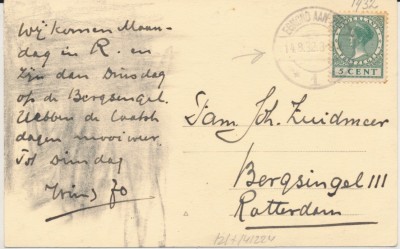 Wij komen Maan-
dag in R. en
zijn dan Dinsdag
op de Bergsingel.
Hebben de laatste
dagen mooi weer.
Tot Dinsdag
Jo
1932
EGMOND AAN
1
5 CENT
Fam. Joh. Zuidmeer
Bergsingel 111
Rotterdam